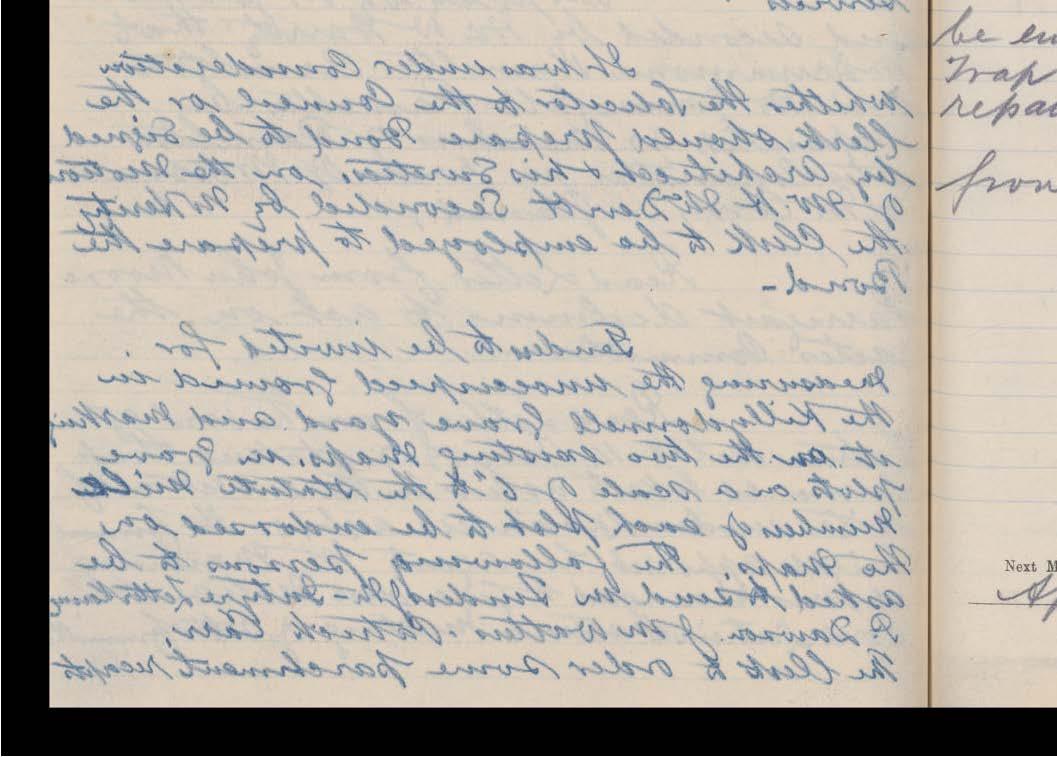 It was under Consideration
whether the Solicitor to the Council or the
Clerk should prepare Bond to be Signed
by Architect & his Sureties, on the Motion
of Mr H McDevitt Seconded by Mr
the Clerk to be employed to prepare the
Bond -
Tenders to be invited for
measuring the unoccupied ground in
the Killydonnell Grave Yard and marking
it on the two existing Maps. in Grave
plots on a scale of 6" to the Statute Mile
Number of each plot to be endorsed on
the Maps. The following persons to be
asked to send in Tenders Letterkenny
P. Dawson J McWatters. Patrick Carr.
The Clerk to order some parchment receipts
be
Trap
repa
from
Next M
Ap